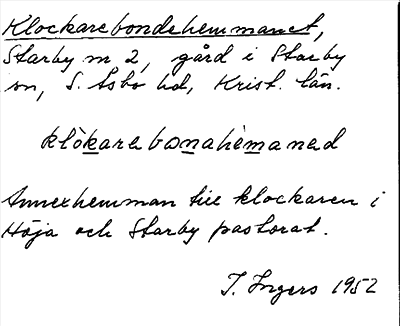 Klockarebondehemmanet,
Starby nr 2, gård i Starby
sn, S. Åsbo hd, Krist. län.
klòkarebonahèmanad
Annexhemman till klockaren i
Höja och Starby pastorat.
I. Ingers 1952